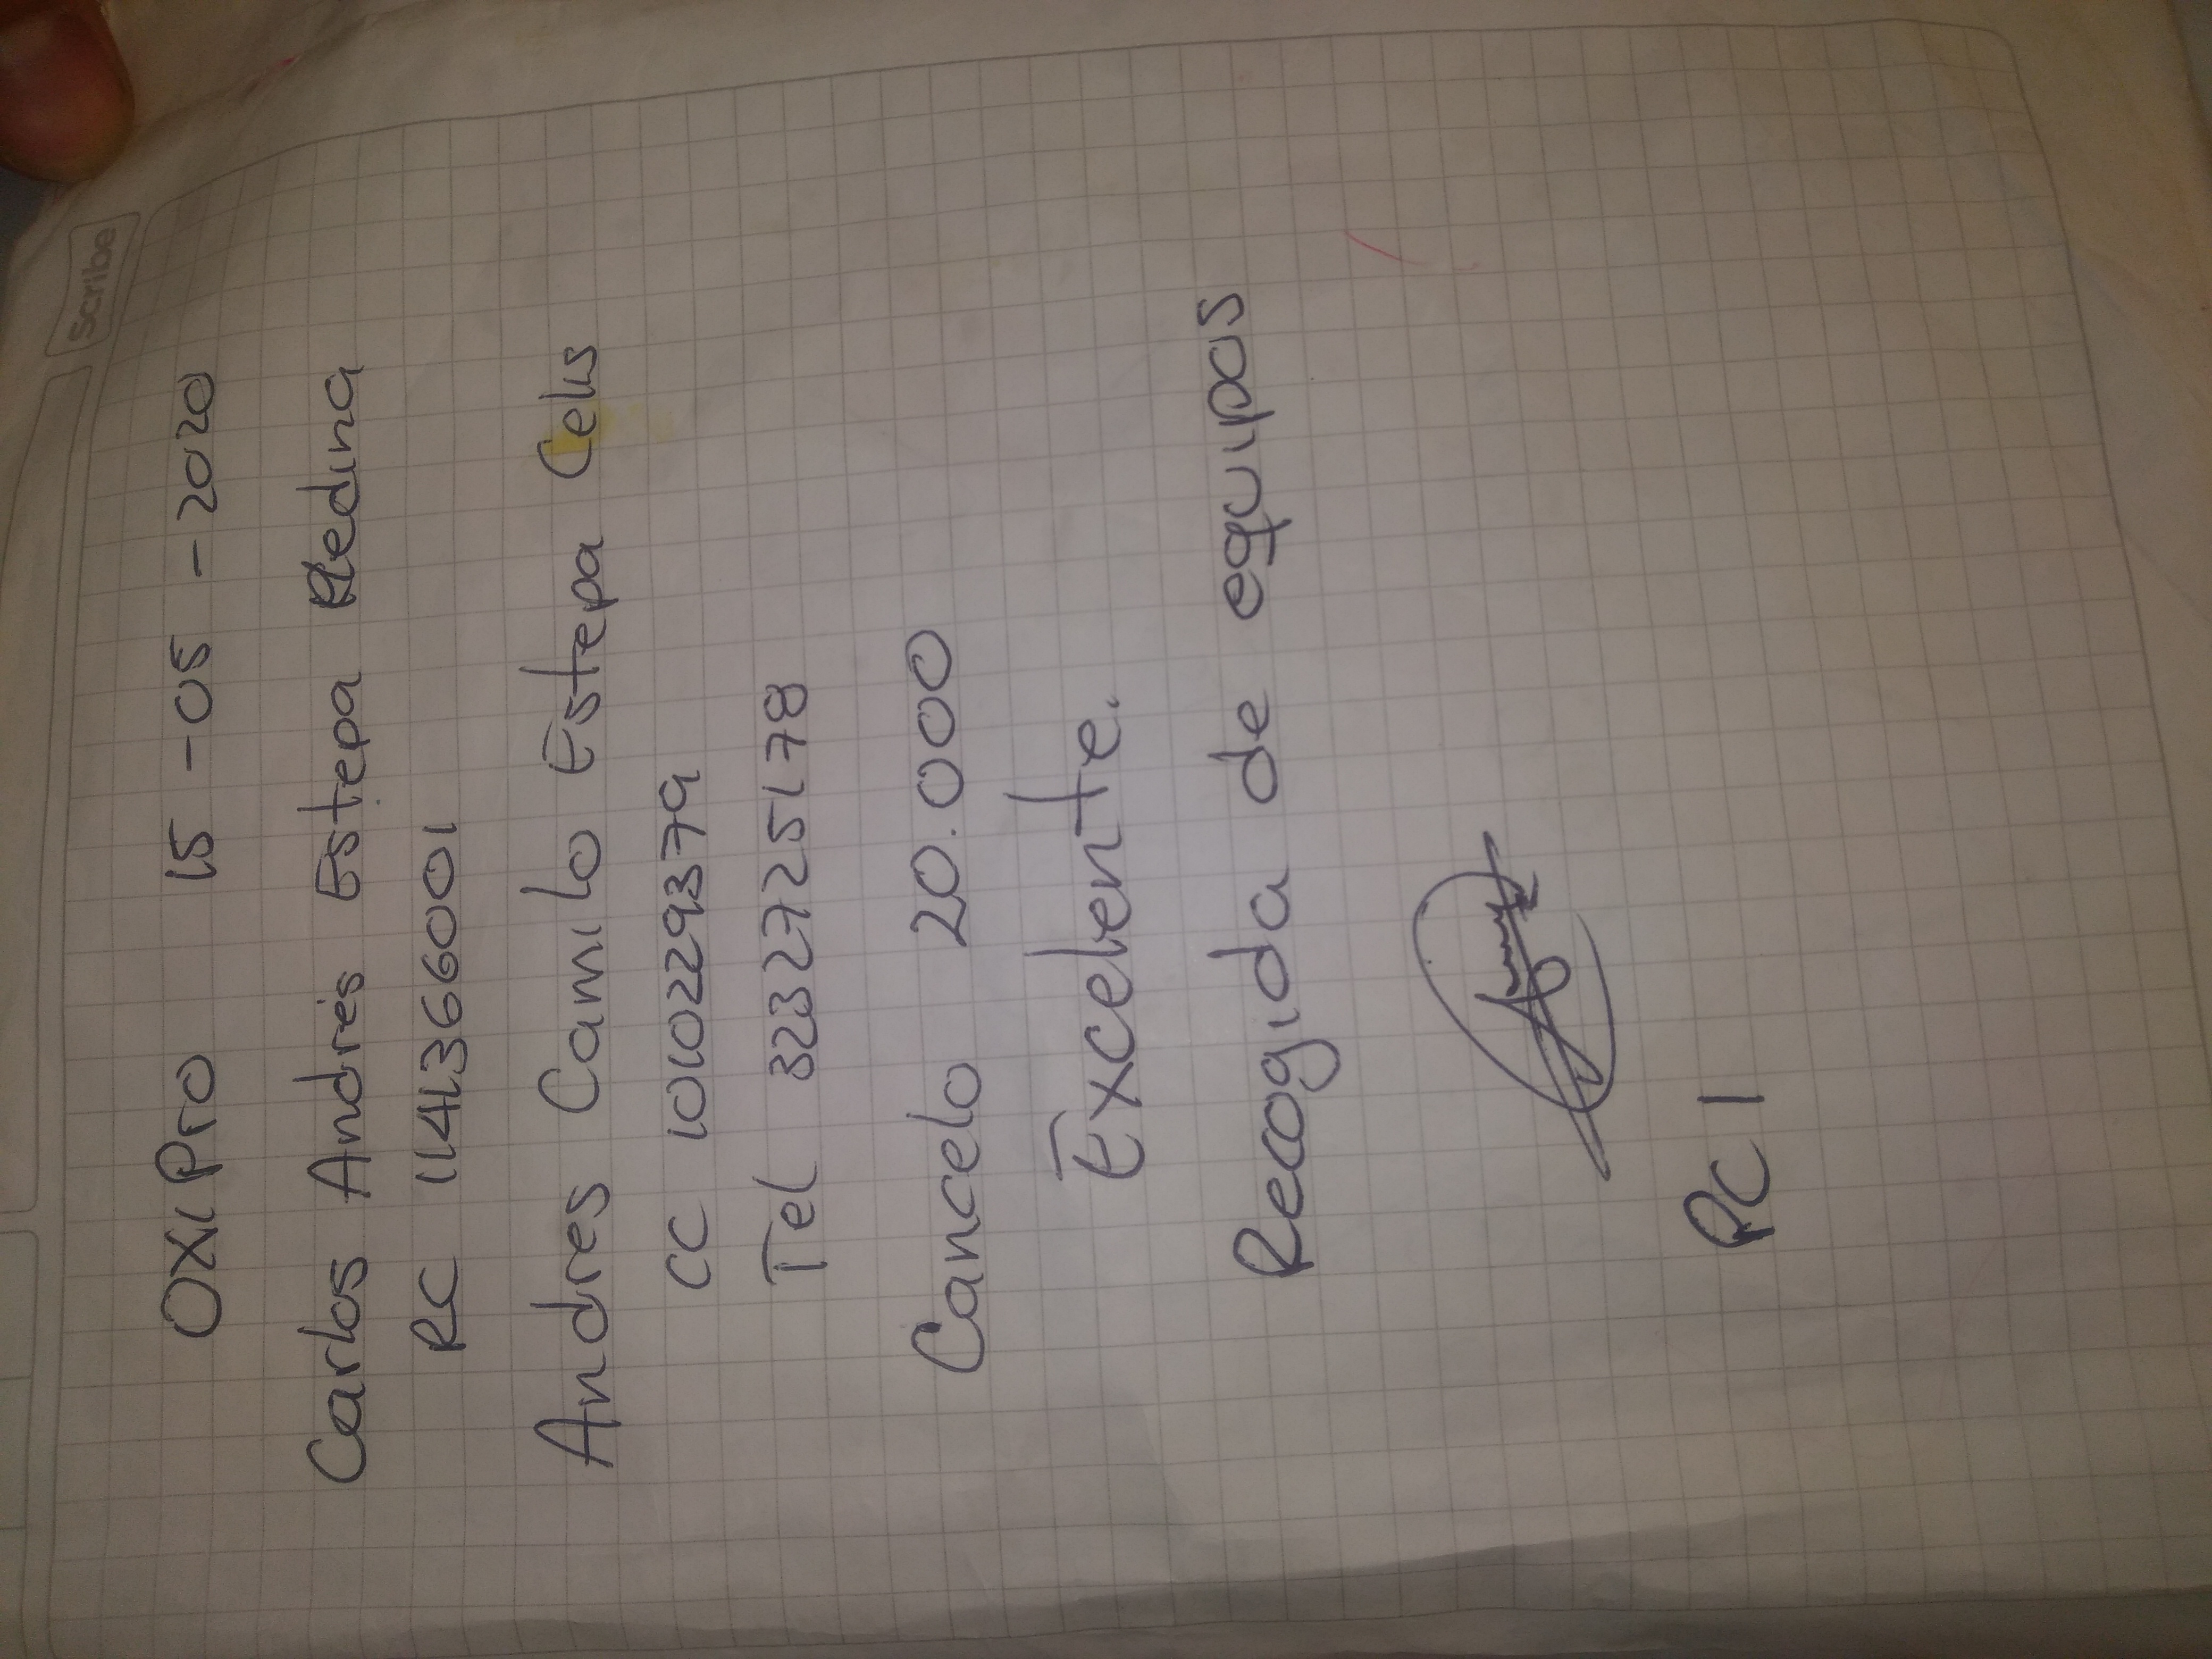 Scribe
OxiPro 15-05-2020
Carlos Andrés Estepa Medina
RC 1141366001
Andres Camilo Estepa Celis
CC 1010229379
Tel 3232725178
Cancelo 20.000
Excelente.
Recogida de equipos
RC 1